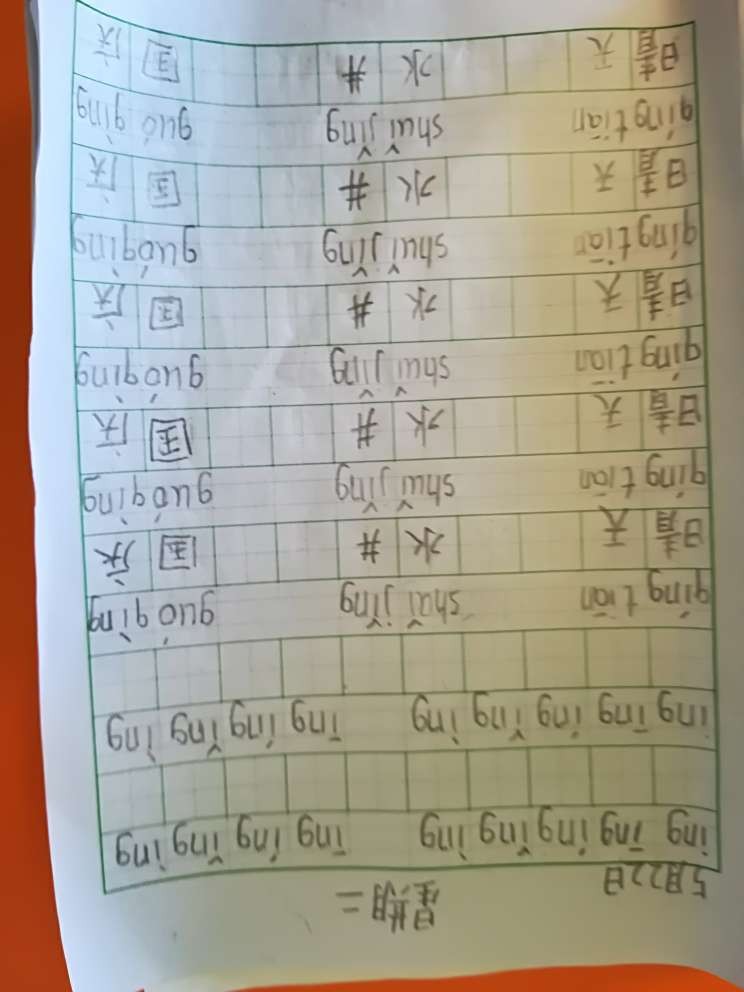 5月22日 星期二
ing īng íng ǐng ìng īng íng ǐng ìng
ing īng íng ǐng ìng īng íng ǐng ìng
qíng tiān shuǐ jǐng guó qìng
晴天 水井 国庆
qíng tiān shuǐ jǐng guó qìng
晴天 水井 国庆
qíng tiān shuǐ jǐng guó qìng
晴天 水井 国庆
qíng tiān shuǐ jǐng guó qìng
晴天 水井 国庆
qíng tiān shuǐ jǐng guó qìng
晴天 水井 国庆